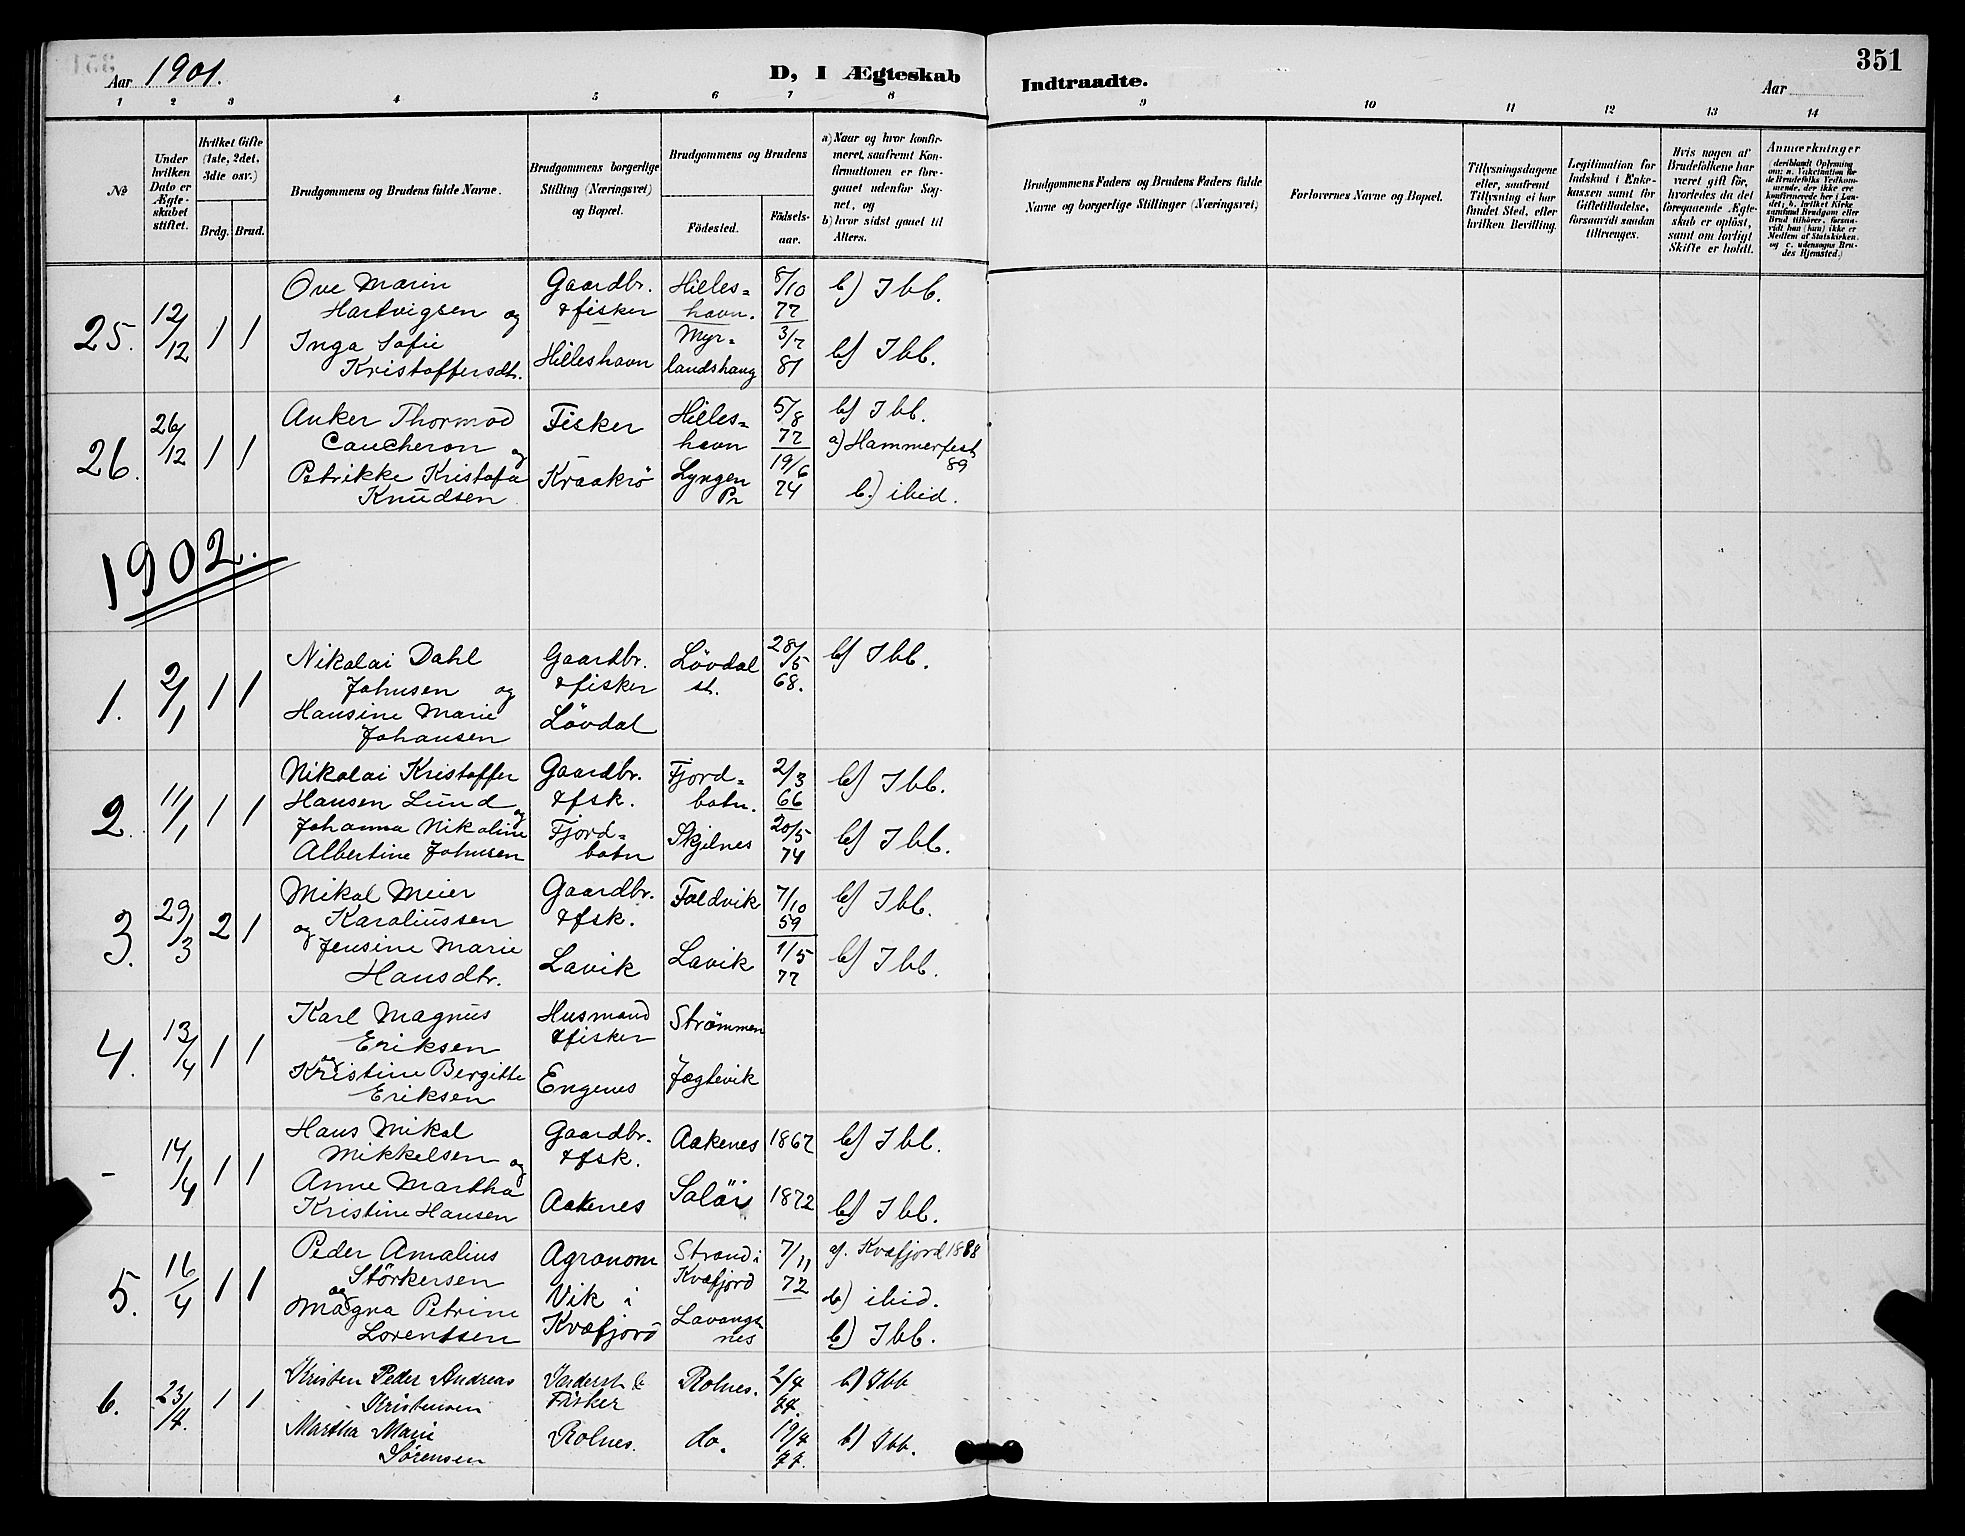 351
Aar 1901.
D, I Ægteskab Indtraadte.
Aar
1 2 3 4 5 6 7 8 9 10 11 12 13 14
No
Under hvilken Dato er Ægteskabet stiftet.
Hvilket Gifte (1ste, 2det, 3die osv.)
Brdg. Brud.
Brudgommens og Brudens fulde Navne.
Brudgommens borgerlige Stilling (Næringsvei) og Bopæl.
Brudgommens og Brudens
Födested.
Födsels-aar.
a) Naar og hvor konfirmeret, saafremt Konfirmationen er foregaaet udenfor Sognet, og
b) hvor sidst gaaet til Alters.
Brudgommens Faders og Brudens Faders fulde Navne og borgerlige Stillinger (Næringsvei)
Forlovernes Navne og Bopæl.
Tillysningsdagene eller, saafremt Tillysning ei har fundet Sted, efter hvilken Bevilling.
Legitimation for Indskud i Enkekassen samt for Giftetilladelse, forsaavidt saadan tiltrænges.
Hvis nogen af Brudefolkene har været gift för, hvorledes da det foregaaende Ægteskab er oplöst, samt om lovligt Skifte er holdt.
Anmærkninger
(deriblandt Oplysning om: a. Vaksination for de Brudefolks Vedkommende, der ikke ere konfirmerede her i Landet; b. hvilket Kirkesamfund Brudgom eller Brud tilhörer, forsaavidt han (hun) ikke er Medlem af Statskirken, og c. udensogns Brudes Hjemsted.)
25. 12/12 1 1
Ove Marin Gaardbr. Hilles= 8/10 b) Ibb.
Hartvigsen og & fisker havn. 77
Inga Sofie Hilleshavn Myr= 3/7 b) Ibb.
Kristoffersdt. landshaug 81
26. 26/12 1 1
Anker Thormod Fisker Hilles= 5/8 b) Ibb.
Caucheron og havn 72 a) Hammerfest 89
Petrikke Kristofa Kraakrö Lyngen 19/6
Knudsen Pr 74 b.) ibid.
1902.
1. 2/1 1 1
Nikolai Dahl Gaardbr. Lövdal 28/5 b) Ibb.
Johnsen og & fisker st. 68.
Hansine Marie Lövdal
Johansen
2. 11/1 1 1
Nikolai Kristoffer Gaardbr. Fjord= 2/3 b) Ibb.
Hansen Lund og & fsk. botn. 66
Johanna Nikoline Fjord= Skjelnes 20/5 b) Ibb.
Albertine Johnsen botn 74
3. 29/3 2 1
Mikal Meier Gaardbr. Foldvik 7/10 b) Ibb.
Karoliussen & fsk. 59
og Jensine Marie Lavik Lavik 1/5 b) Ibb.
Hansdtr. 77
4. 13/4 1 1
Karl Magnus Husmand Strömmen
Eriksen & fisker
og Kristine Bergitte Engenes Jægtevik
Eriksen
- 14/4 1 1
Hans Mikal Gaardbr. Aakenes 1867 b) Ibb.
Mikkelsen og & fsk.
Anne Martha Aakenes Salöi 1872
Kristine Hansen b) Ibb.
5. 16/4 1 1
Peder Amalius Agronom Strand i 7/11 a). Kvæfjord 1888
Störkersen Vik i Kvæfjord 72 b) ibid.
og Magna Petrine Kvæfjord Lavangs-
Lorentsen nes b) Ibb.
6. 23/4. 1 1
Kristen Peder Andreas Rolnes. 2/4 b) Ibb
Kristensen Fisker 77.
Martha Marie Rolnes. do. 19/4 b) Ibb.
Sörensen 77.